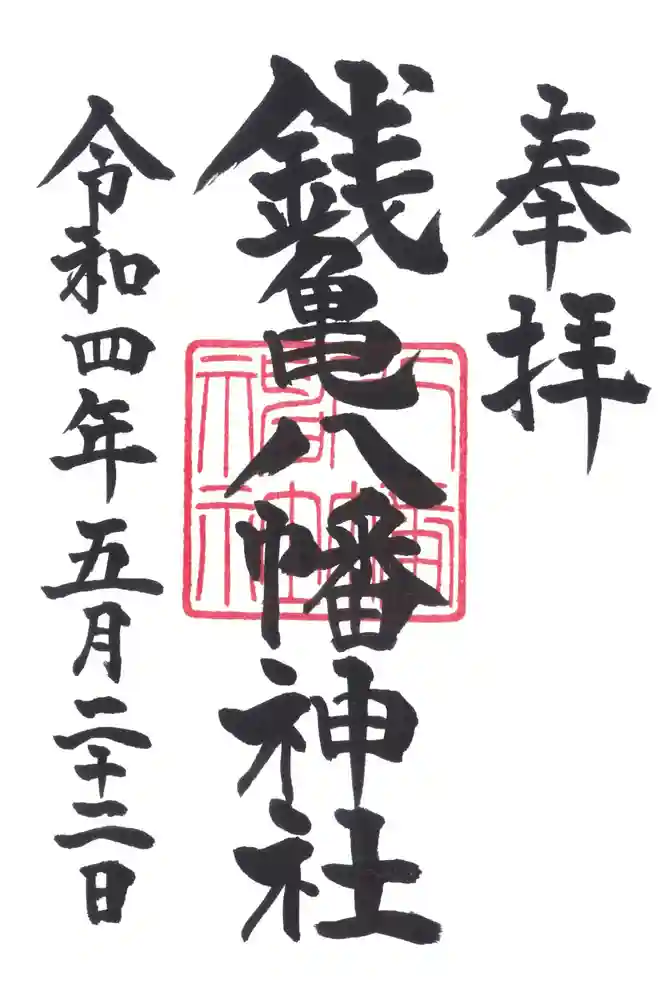 奉拝
銭亀八幡神社
八幡神社
令和四年五月二十二日